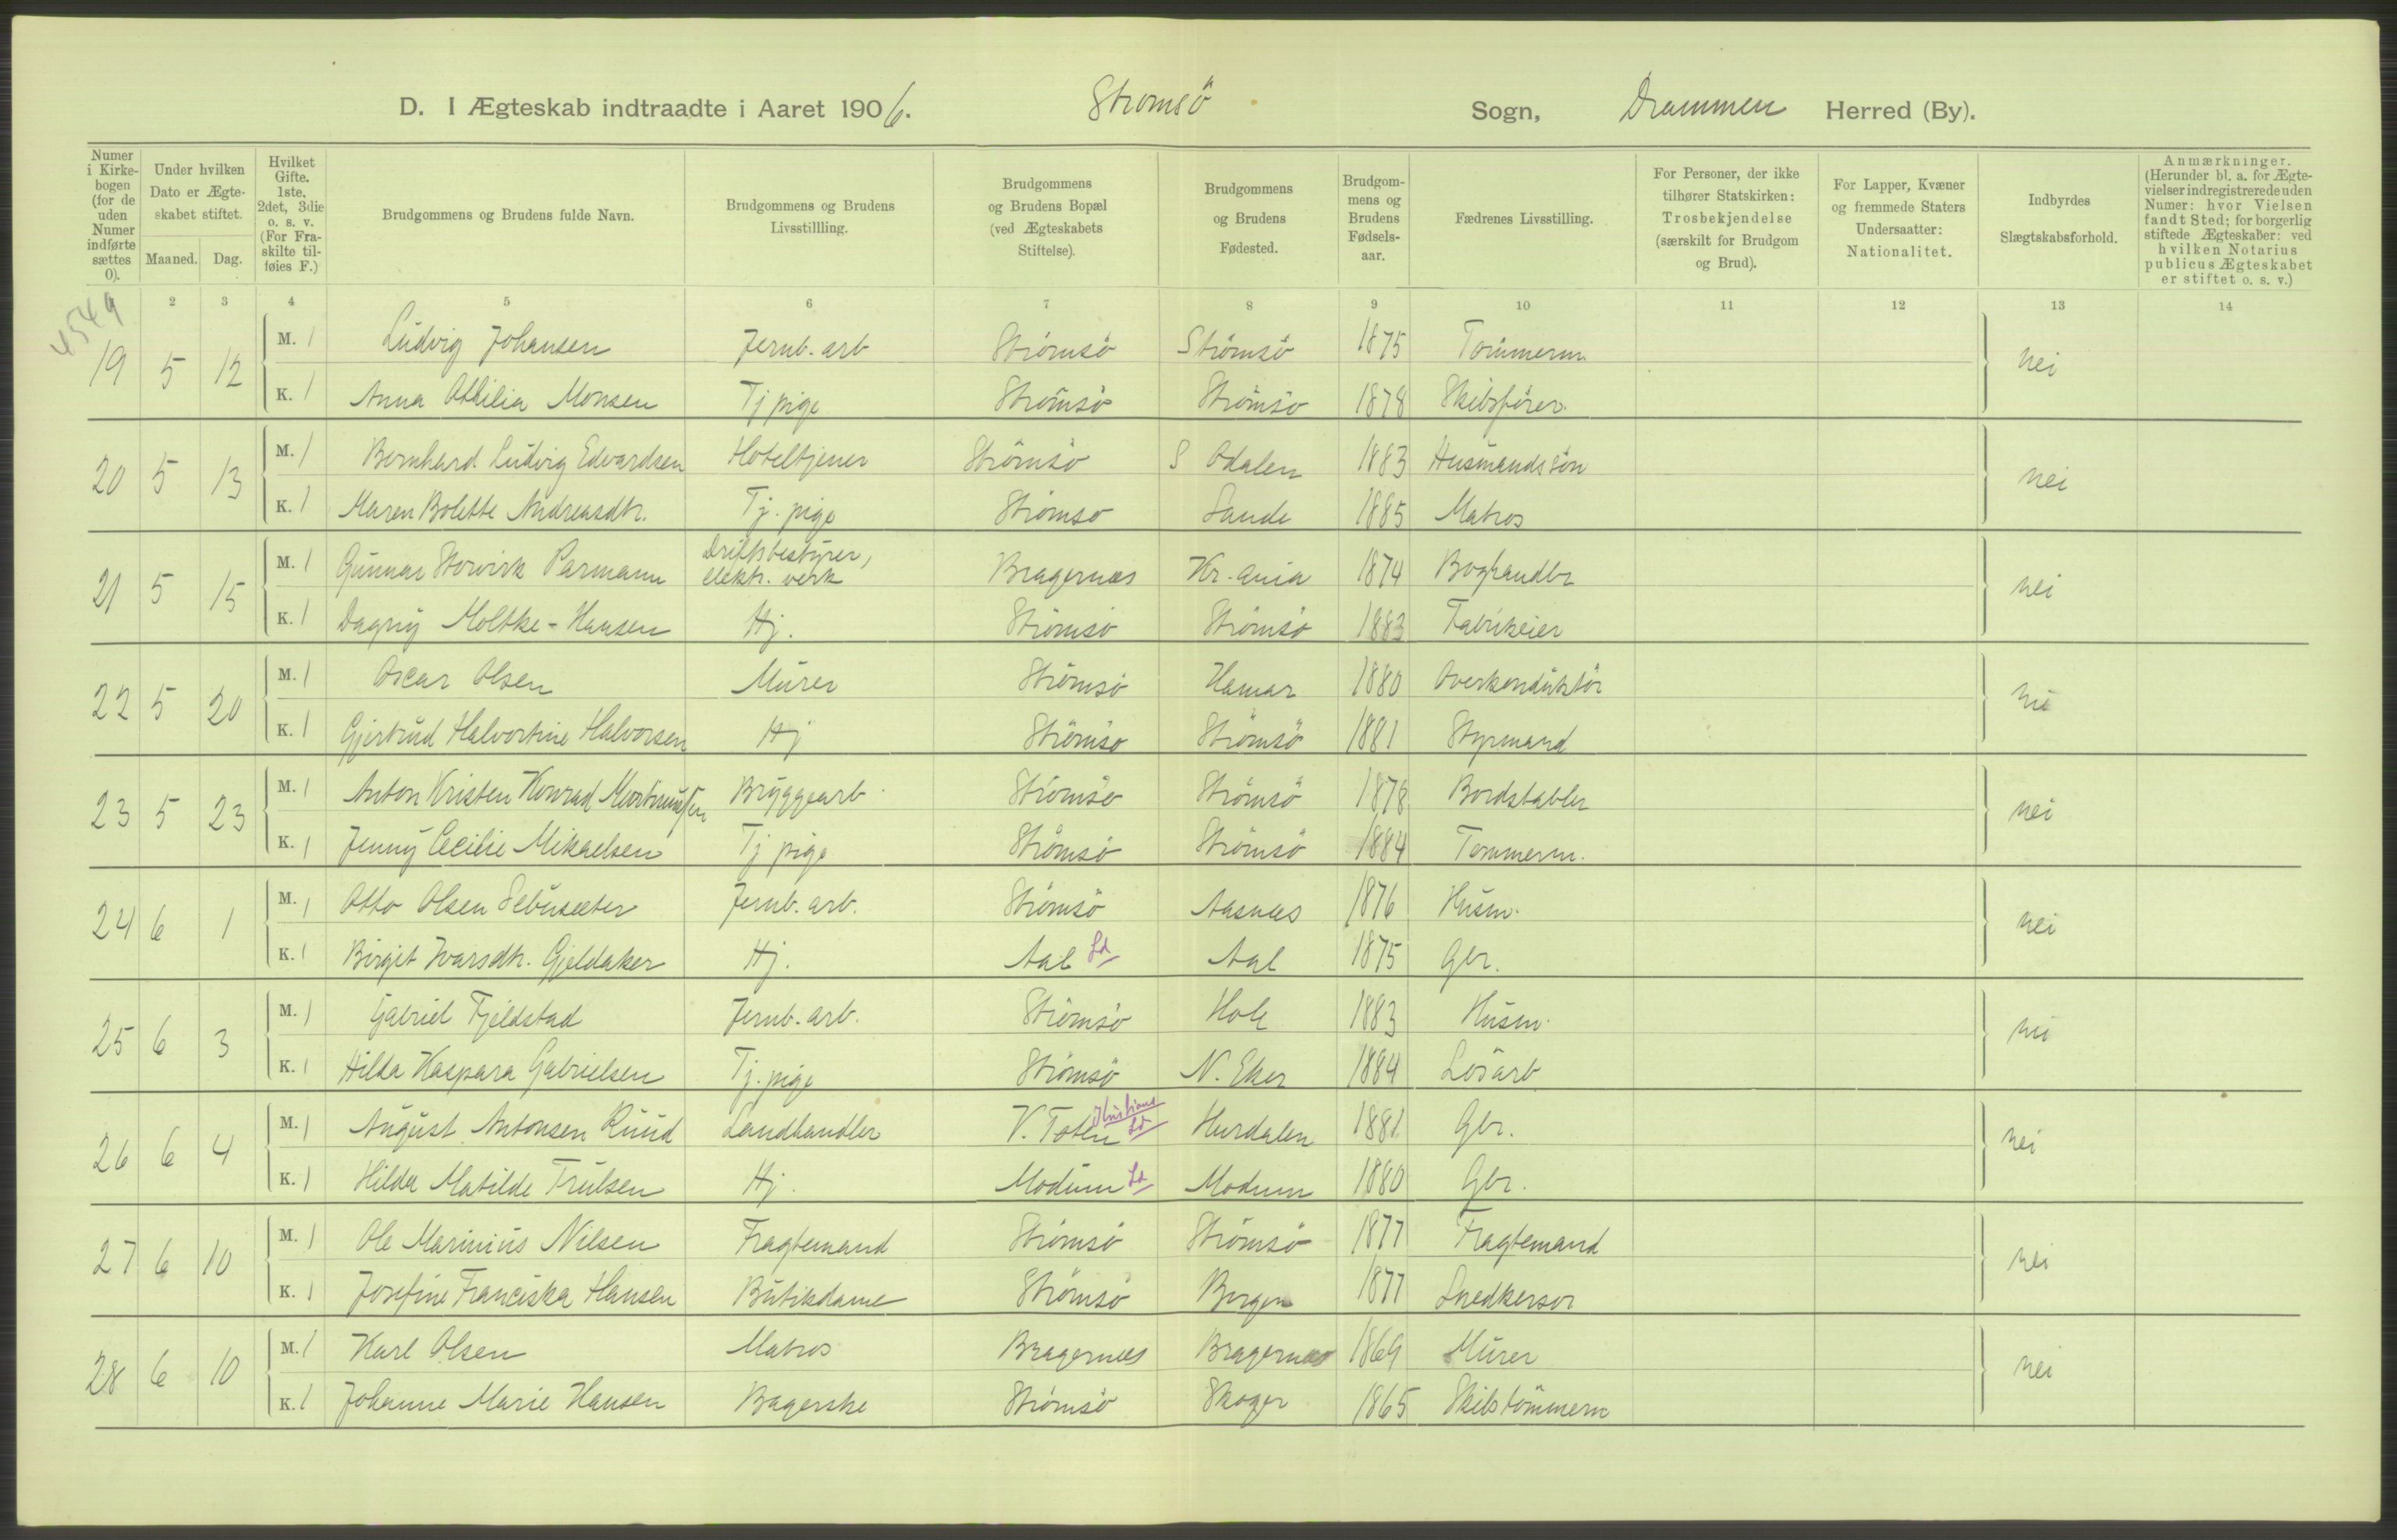 D. I Ægteskab indtraadte i Aaret 1906. Strømsö Sogn, Drammen Herred (By).
Numer i Kirkebogen (for de uden Numer indførte sættes 0).
Under hvilken Dato er Ægteskabet stiftet.
Maaned. Dag.
Hvilket Gifte. 1ste, 2det, 3die o. s. v. (For Fraskilte tilføies F.)
Brudgommens og Brudens fulde Navn.
Brudgommens og Brudens Livsstillling.
Brudgommens og Brudens Bopæl (ved Ægteskabets Stiftelse).
Brudgommens og Brudens Fødested.
Brudgommens og Brudens Fødselsaar.
Fædrenes Livsstilling.
For Personer, der ikke tilhører Statskirken: Trosbekjendelse (særskilt for Brudgom og Brud).
For Lapper, Kvæner og fremmede Staters Undersaatter: Nationalitet.
Indbyrdes Slægtskabsforhold.
Anmærkninger. (Herunder bl. a. for Ægtevielser indregistrerede uden Numer: hvor Vielsen fandt Sted; for borgerlig stiftede Ægteskaber: ved hvilken Notarius publicus Ægteskabet er stiftet o. s. v.)
4549
2 3 4 5 6 7 8 9 10 11 12 13 14
19 5 12 M. 1 Ludvig Johansen Jernb. arb Strømsö Strömsö 1875 Tömmerm. nei
K. 1 Anna Othilia Monsen Tj pige Strömsö Strömsö 1878 Skibsfører.
20 5 13 M. 1 Bernhard Ludvig Edvardsen Hoteltjener Strömsö S Odalen 1883 Husmandssön nei
K. 1 Maren Bolette Andreasdtr. Tj. pige Strömsö Sande 1885 Matros
21 5 15 M. 1 Gunnar Storvirk Parmann Driftsbestyrer, elektr. verk Bragernæs Kr.ania 1874 Boghandler nei
K. 1 Dagny Moltke-Hansen Hj. Strömsö Strömsö 1883 Fabrikeier
22 5 20 M. 1 Oscar Olsen Murer Strömsö Hamar 1880 Overkonduktör nei
K. 1 Gjertrud Halvortine Halvorsen Hj Strömsö Strömsö 1881 Styrmand
23 5 23 M. 1 Anton Kristen Konrad Martinussen Bryggearb. Strömsö Strömsö 1878 Bordstabler nei
K. 1 Jenny Cecilie Mikaelsen Tj pige Strömsö Strömsö 1884 Tømmerm.
24 6 1 M. 1 Otto Olsen Sebusæter Jernb. arb. Strömsö Aasnæs 1876 Husm. nei
K. 1 Birgit Ivarsdtr. Gjeldaker Hj. Aal Ld Aal 1875 Gbr.
25 6 3 M. 1 Gabriel Fjeldstad Jernb. arb. Strömsö Hole 1883 Husm. nei
K. 1 Hilda Kaspara Gabrielsen Tj. pige Strömsö N. Eker 1884 Lösarb
26 6 4 M. 1 August Antonsen Ruud Landhandler V. Toten Kristians Ld Hurdalen 1881 Gbr. nei
K. 1 Hilda Matilde Trulsen Hj. Modum Ld Modum 1880 Gbr.
27 6 10 M. 1 Ole Marinius Nilsen Fragtemand Strömsö Strömsö 1877 Fragtemand nei
K. 1 Josefine Franciska Hansen Butikdame Strömsö Bergen 1877 Snedkersv
28 6 10 M. 1 Karl Olsen Matros Bragernæs Bragernæs 1869 Murer nei
K. 1 Johanne Marie Hansen Bagerske Strömsö Skoger 1865 Skibstömmerm